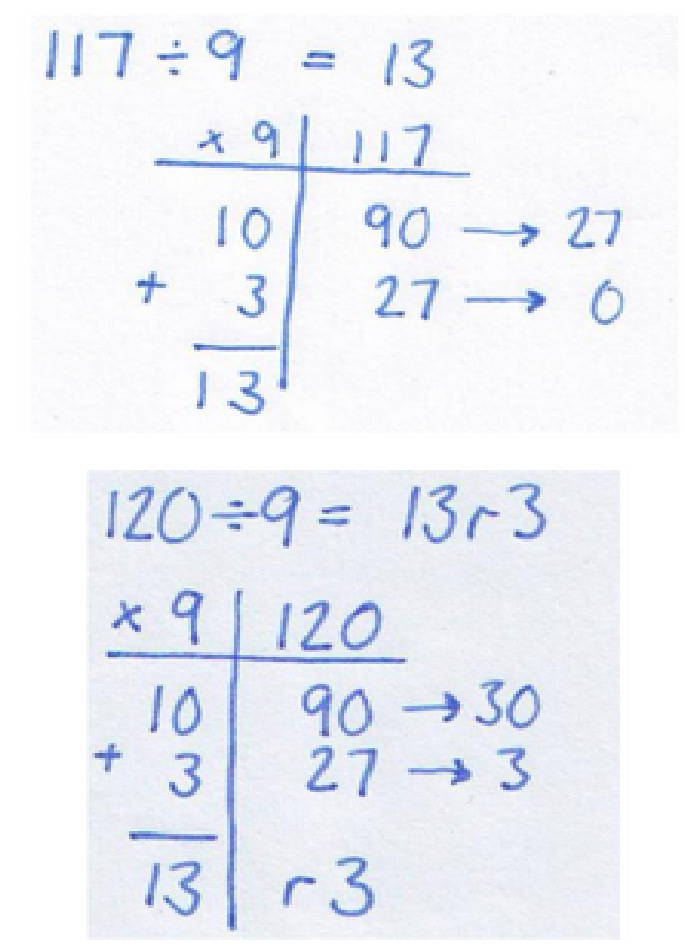 117 ÷ 9 = 13
× 9 | 117
10 | 90 → 27
+ 3 | 27 → 0
13
120 ÷ 9 = 13 r 3
× 9 | 120
10 | 90 → 30
+ 3 | 27 → 3
13 | r 3